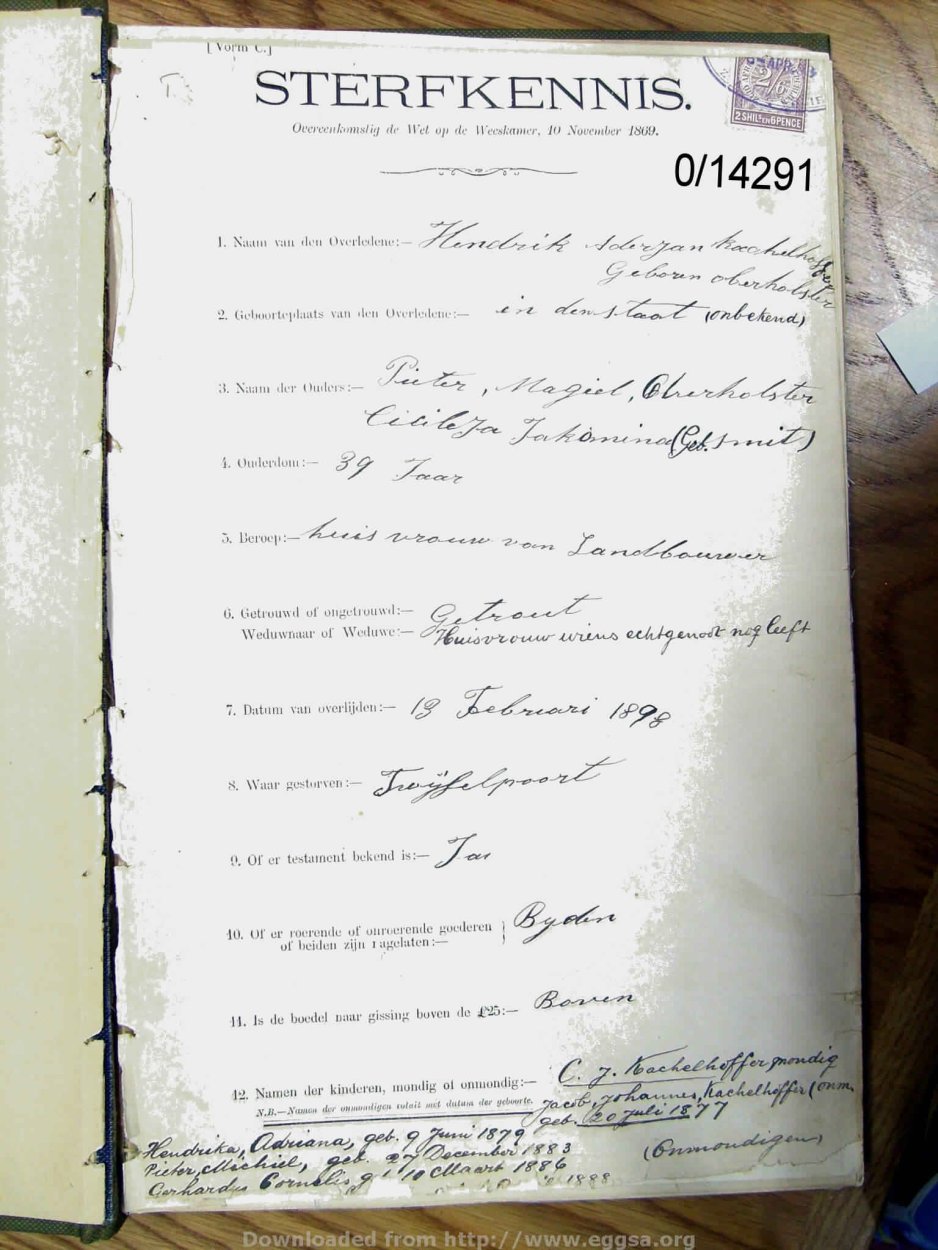 [Vorm C.]
STERFKENNIS.
Overeenkomstig de Wet op de Weeskamer, 10 November 1869.
2/6
2 SHIL^S EN 6 PENCE
0/14291
1. Naam van den Overledene:— Hendrik Aderjan Kachelhoffer
Geboren oberholster
2. Geboorteplaats van den Overledene:— in den staat (onbekend)
3. Naam der Ouders:— Pieter, Magiel, Oberholster
Cicilja Jakomina (Geb. Smit)
4. Ouderdom:— 39 Jaar
5. Beroep:— huis vrouw van Landbouwer
6. Getrouwd of ongetrouwd:— Getrout
Weduwnaar of Weduwe:— Huisvrouw wiens echtgenoot nog leeft
7. Datum van overlijden:— 13 Februari 1898
8. Waar gestorven:— Twÿfelpoort
9. Of er testament bekend is:— Jaa
10. Of er roerende of onroerende goederen
of beiden zijn nagelaten:— Byden
11. Is de boedel naar gissing boven de £25:— Boven
12. Namen der kinderen, mondig of onmondig:— C. J. Kachelhoffer mondig
N.B.—Namen der onmondigen voluit met datum der geboorte. Jacob, Johannes, Kachelhoffer (onm.
geb. 20 Juli 1877
Hendrika, Adriana, geb. 9 Juni 1879
(Onmondigen)
Pieter, Michiel, geb. 27 December 1883
Gerhardus Cornelis g 10 Maart 1886
1888
Downloaded from http://www.eggsa.org